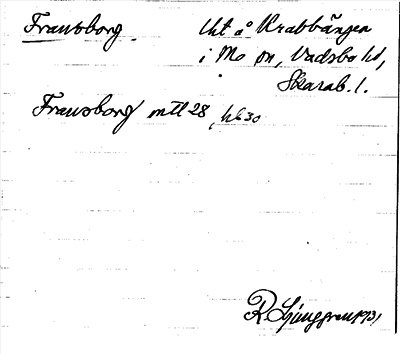 Fransborg. Lht å Krabbängen
i Mo sn, Vadsbo hd,
Skarab. l.
Fransborg mtl 28, hk 30
R. Ljunggren 1931